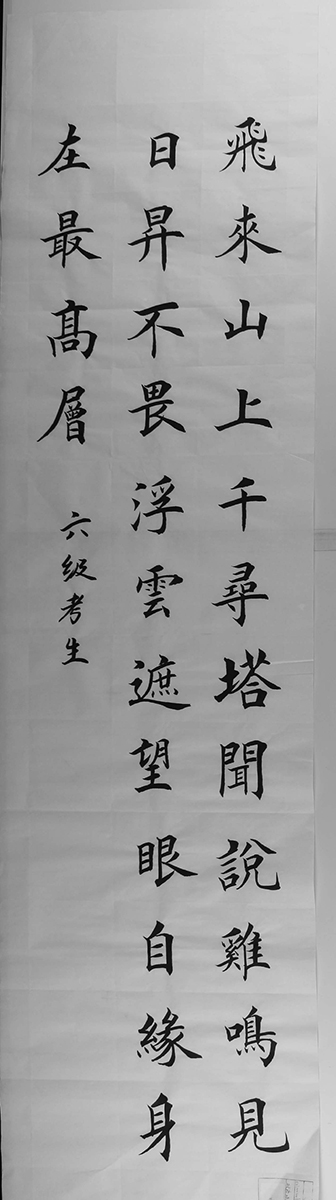 飛來山上千尋塔聞說雞鳴見
日昇不畏浮雲遮望眼自緣身
在最高層
六级考生